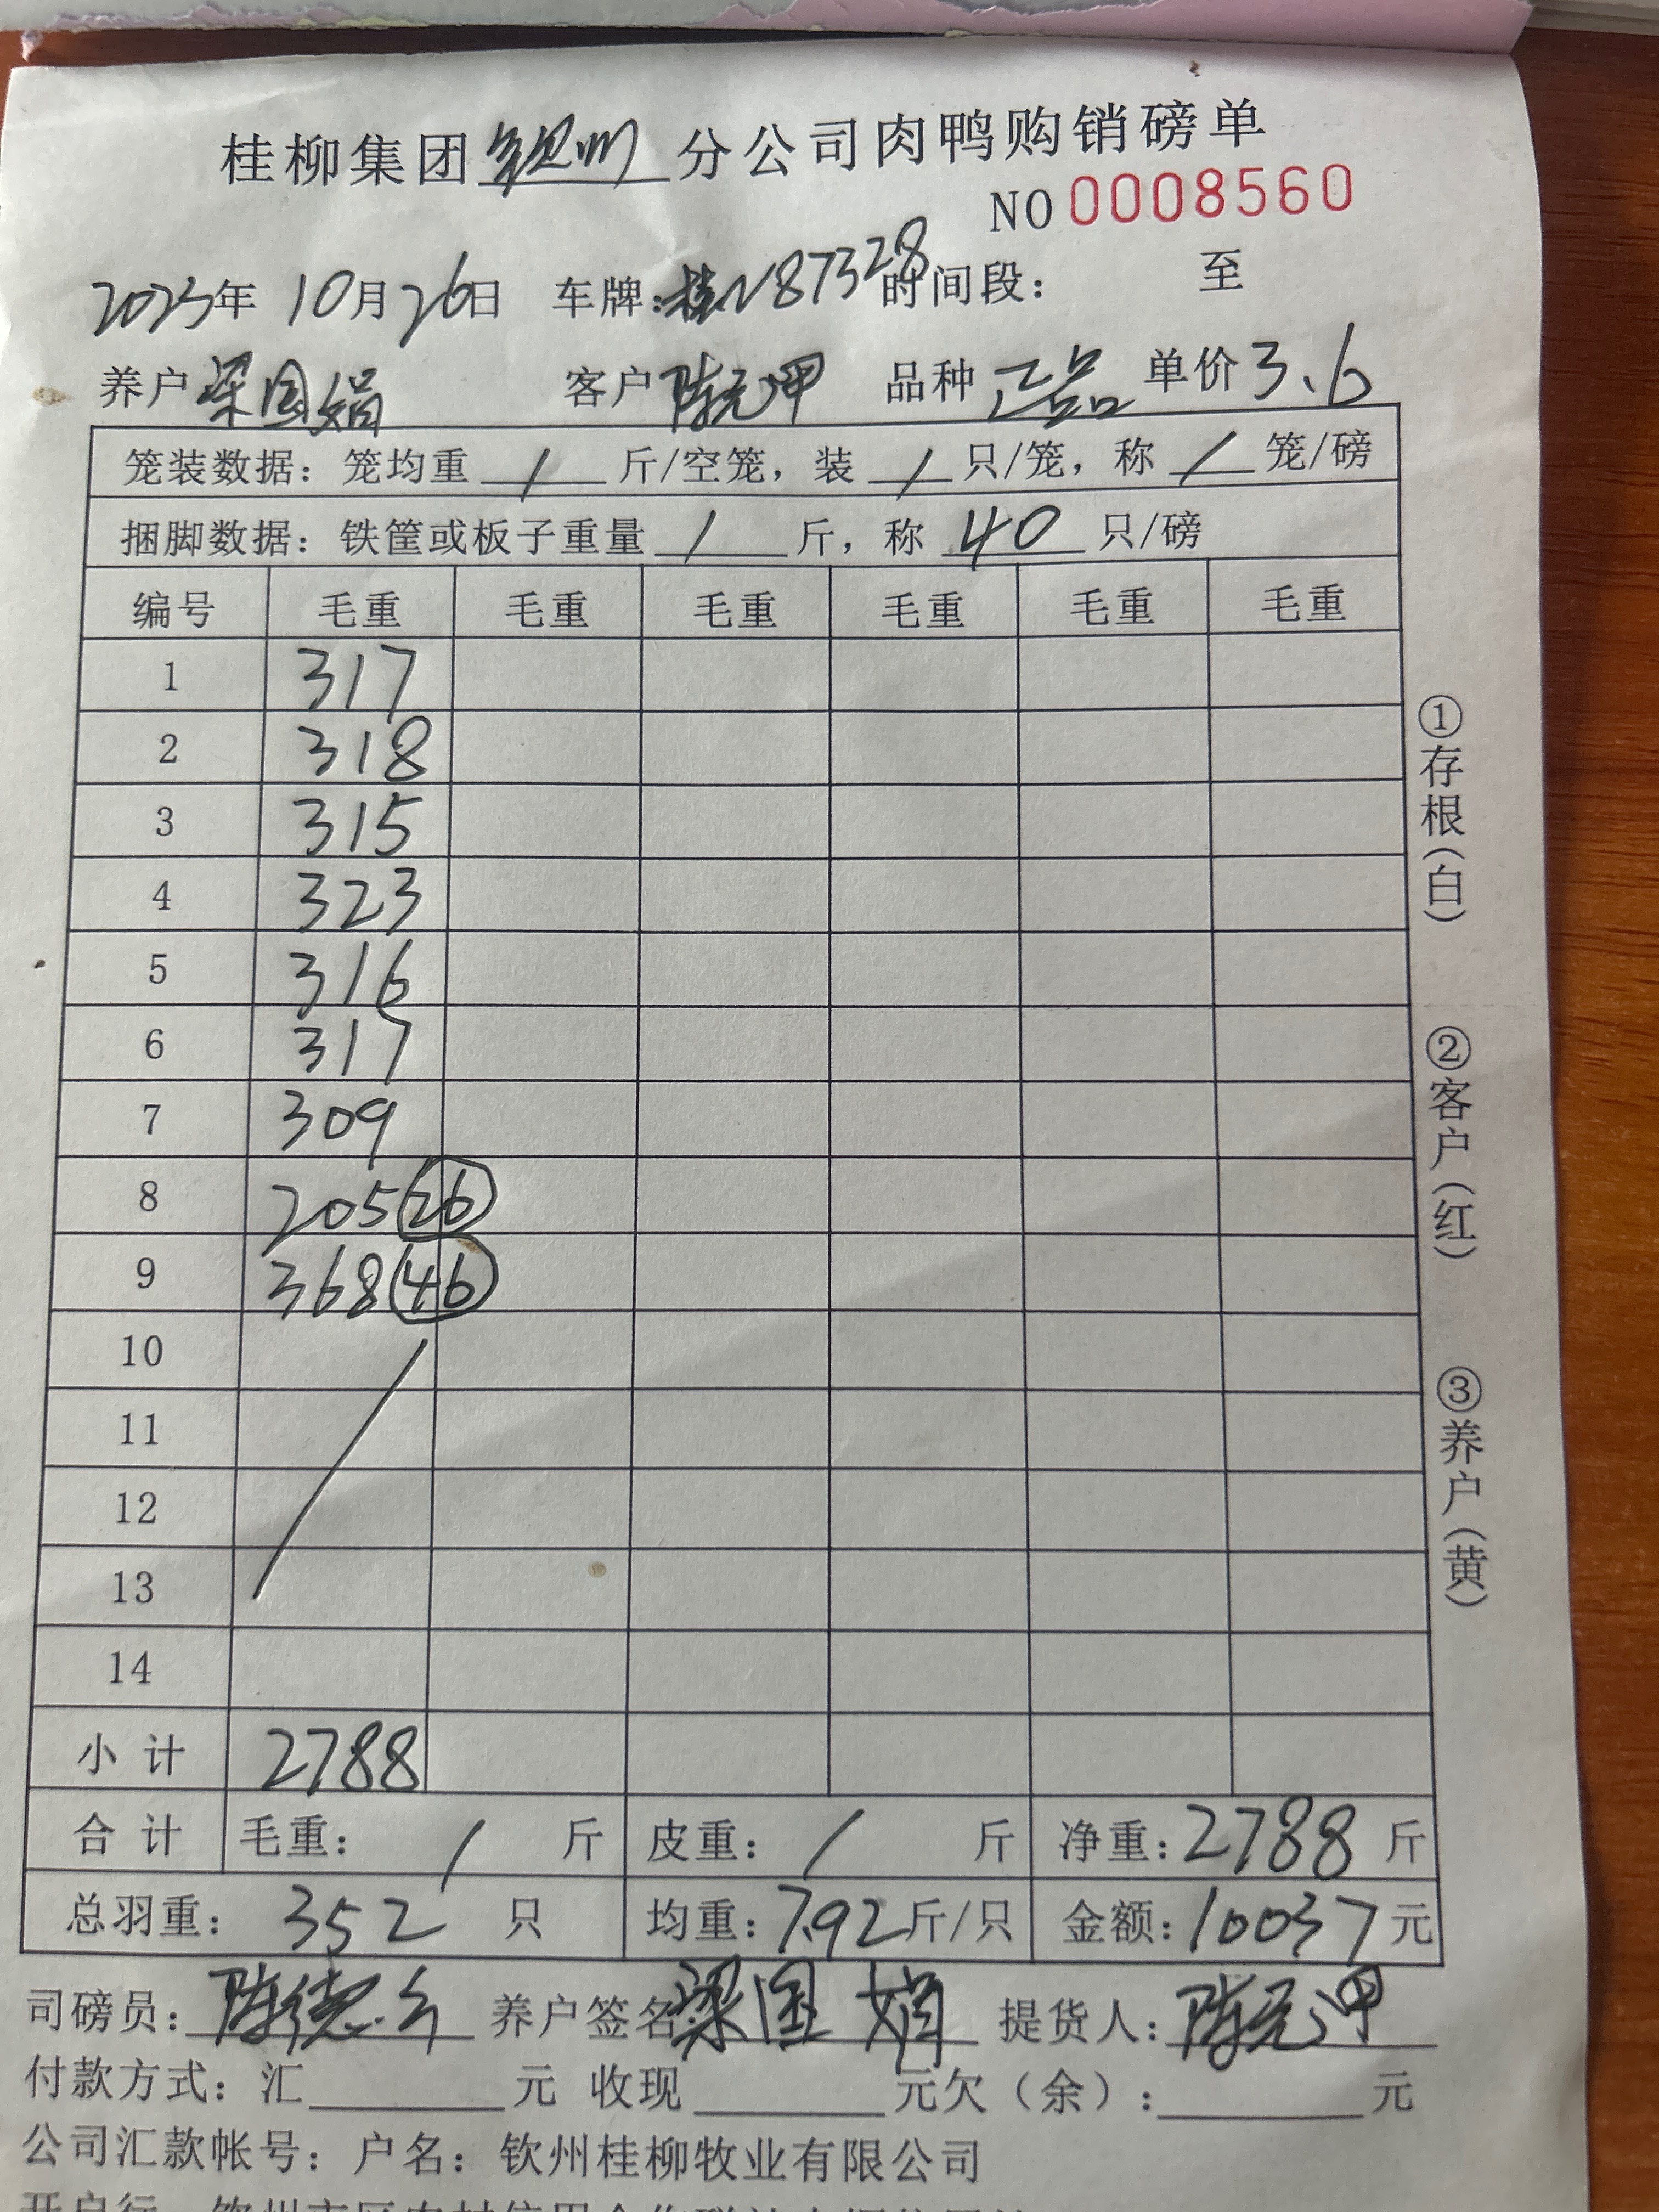 桂柳集团钦州分公司肉鸭购销磅单
NO 0008560
2023年 10月26日 车牌:桂N87328 时间段: 至
养户 梁国娟 客户 陈元甲 品种 正品 单价 3.6
笼装数据: 笼均重 / 斤/空笼, 装 / 只/笼, 称 / 笼/磅
捆脚数据: 铁筐或板子重量 / 斤, 称 40 只/磅
编号 毛重 毛重 毛重 毛重 毛重 毛重
1 317
2 318
3 315
4 323
5 316
6 317
7 309
8 205 26
9 368 46
10
11
12
13
14
小计 2788
合计 毛重: / 斤 皮重: / 斤 净重: 2788 斤
总羽重: 352 只 均重: 7.92 斤/只 金额: 10037 元
司磅员: 陈德 养户签名: 梁国娟 提货人: 陈元甲
付款方式: 汇 元 收现 元欠(余): 元
公司汇款帐号: 户名: 钦州桂柳牧业有限公司
①存根(白) ②客户(红) ③养户(黄)